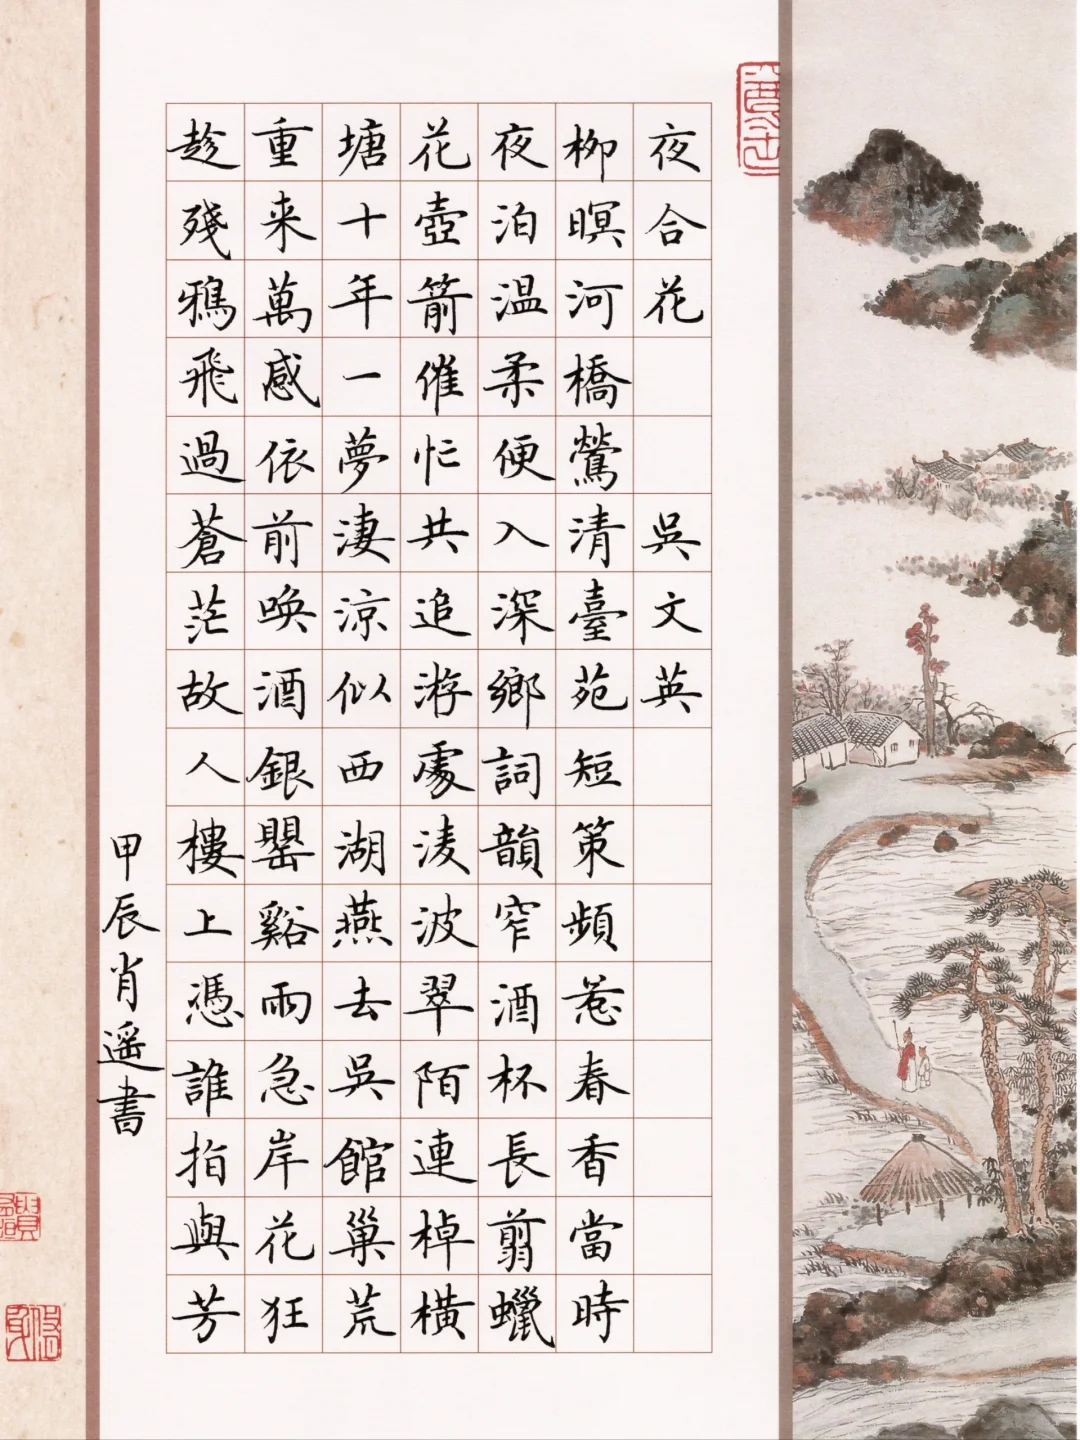 夜合花 吳文英
柳暝河橋鶯清臺苑短策頻惹春香當時
夜泊温柔便入深鄉詞韻窄酒杯長剪蠟
花壺箭催忙共追游處凌波翠陌連棹橫
塘十年一夢淒涼似西湖燕去吳館巢荒
重来萬感依前喚酒銀罌谿雨急岸花狂
趁殘鴉飛過蒼茫故人樓上憑誰指與芳
甲辰肖遥書